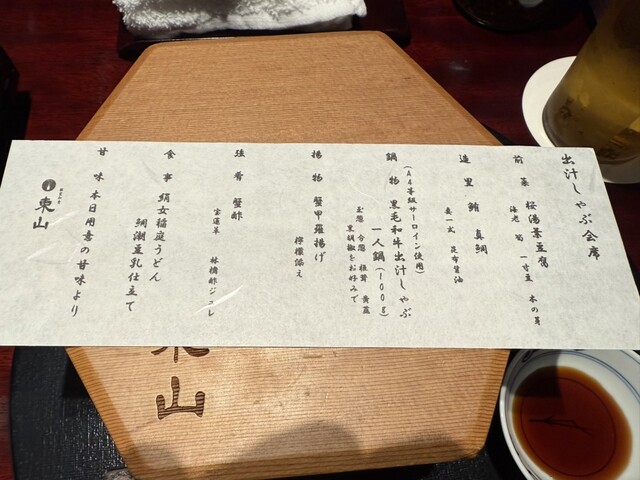 出汁しゃぶ会席
前菜 桜湯葉豆富
海老 筍 一寸豆 木の芽
造里 鮪 真鯛
妻一式 昆布醤油
鍋物 黒毛和牛出汁しゃぶ
(A4等級サーロイン使用)
一人鍋(100g)
玉葱 分葱 椎茸 黄韮
黒胡椒をお好みで
揚物 蟹甲羅揚げ
檸檬添え
強肴 蟹酢
宝蓮草 林檎酢ジュレ
食事 絹女稲庭うどん
鯛潮豆乳仕立て
甘味 本日用意の甘味より
東山
東山